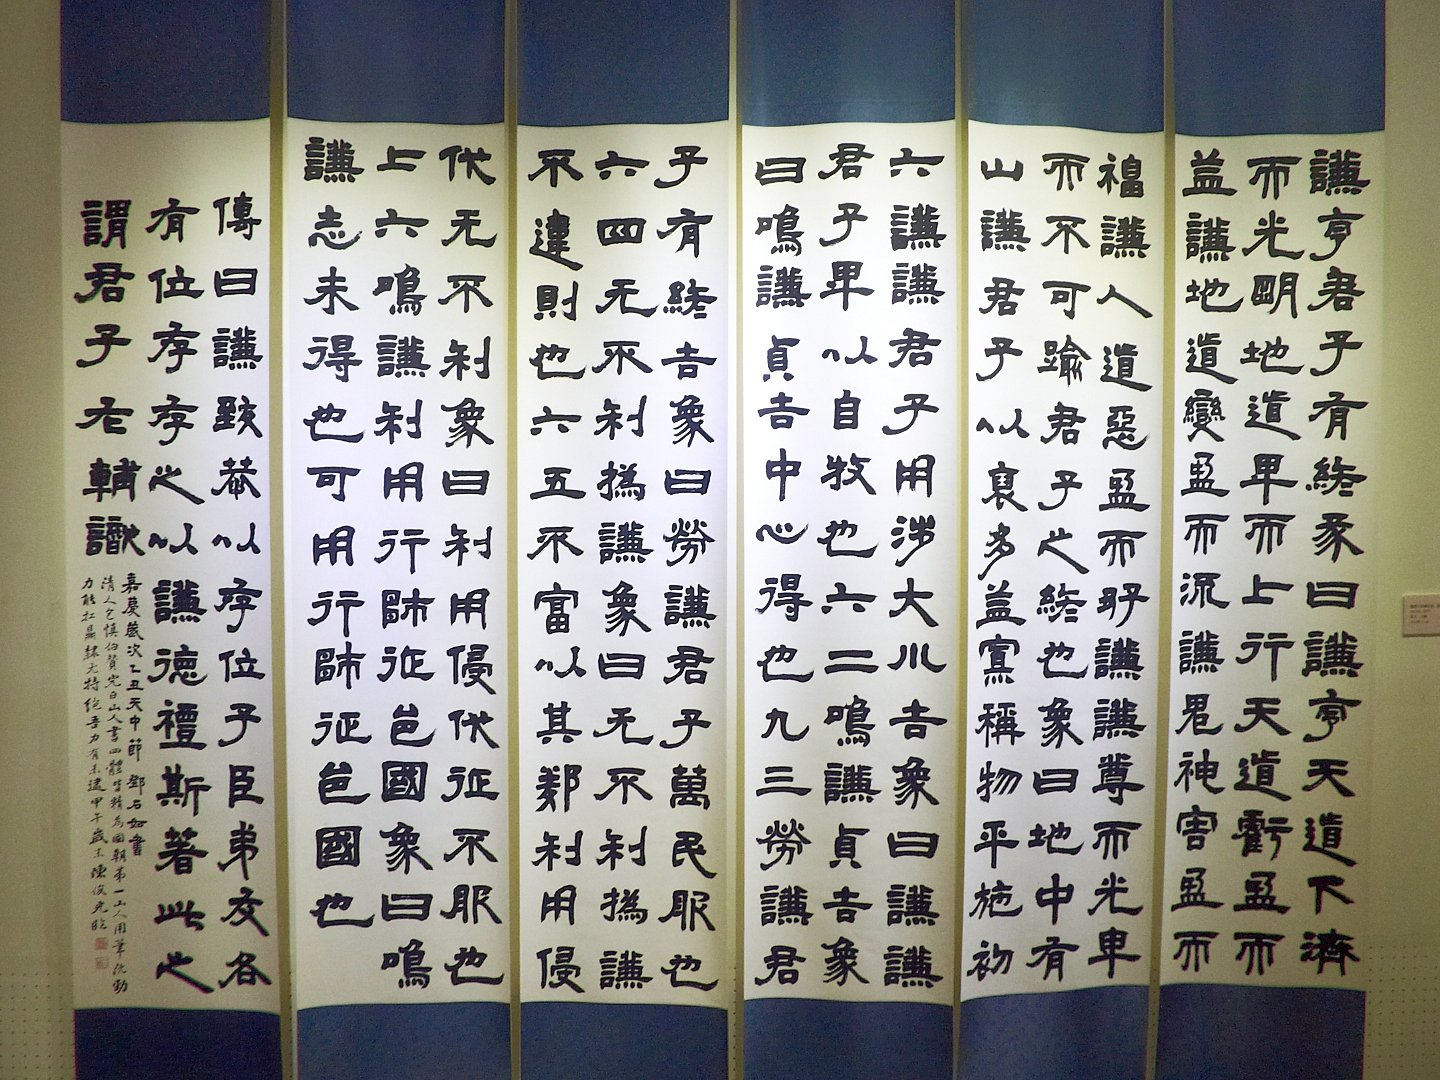 謙亨君子有終彖曰謙亨天道下濟
而光明地道卑而上行天道虧盈而
益謙地道變盈而流謙鬼神害盈而
福謙人道惡盈而好謙謙尊而光卑
而不可踰君子之終也象曰地中有
山謙君子以裒多益寡稱物平施初
六謙謙君子用涉大川吉象曰謙謙
君子卑以自牧也六二鳴謙貞吉象
曰鳴謙貞吉中心得也九三勞謙君
子有終吉象曰勞謙君子萬民服也
六四无不利撝謙象曰无不利撝謙
不違則也六五不富以其鄰利用侵
伐无不利象曰利用侵伐征不服也
上六鳴謙利用行師征邑國象曰鳴
謙志未得也可用行師征邑國也
傳曰謙致恭以存位子臣弟友各
有位存存之以謙德禮斯著此之
謂君子輔讞
嘉慶歲次乙丑天中節鄧石如書
清人包慎伯贊完白山人書四體皆精為國朝第一山人用筆沈勁
力能扛鼎隸尤特絶吾力有未逮甲午歲末陳俊光臨